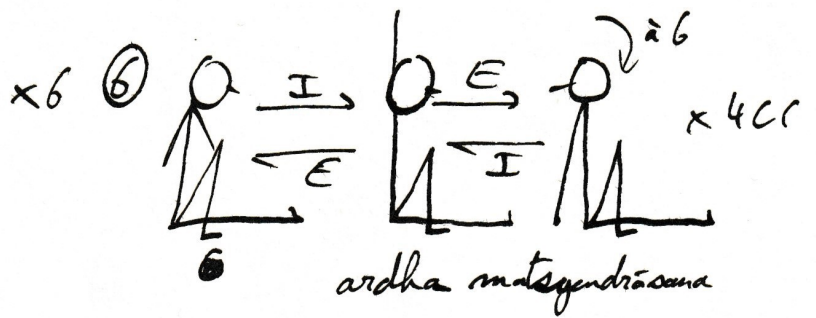 x6 ⑥ I E à 6
E I x 4 CC
G
ardha matsyendrāsana